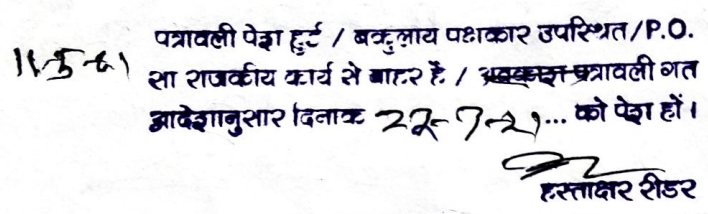 पत्रावली पेश हुई / वकुलाय पक्षकार उपस्थित/P.O.
सा राजकीय कार्य से बाहर है / पत्रावली गत
आदेशानुसार दिनांक 22-7-21... को पेश हों।
हस्ताक्षर रीडर